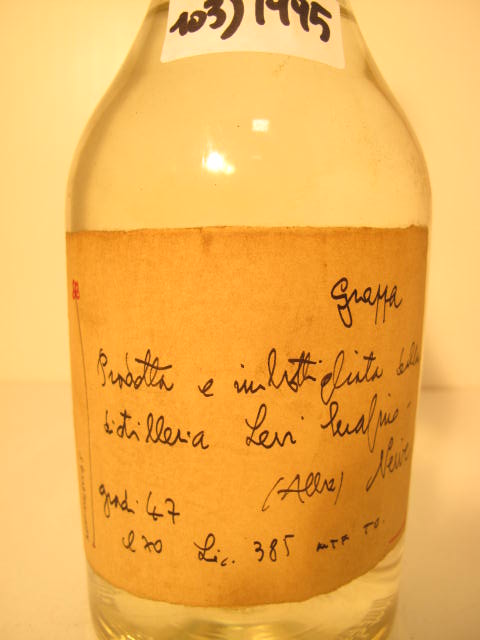 103) 1995
Grappa
Prodotta e imbottigliata dalla
distilleria Levi Serafino -
(Alba) Neive
gradi 47
l 70 Lic. 385 TO.